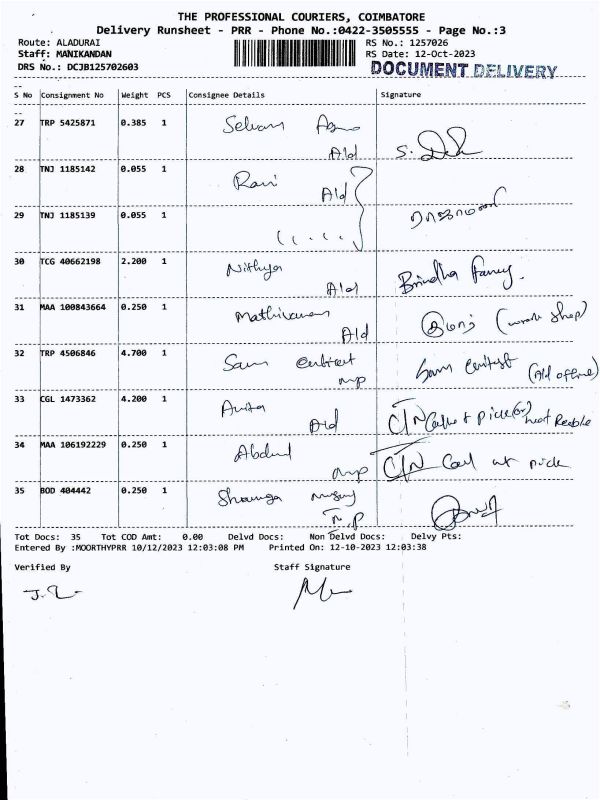 THE PROFESSIONAL COURIERS, COIMBATORE
Delivery Runsheet - PRR - Phone No.:0422-3505555 - Page No.:3
Route: ALADURAI RS No.: 1257026
Staff: MANIKANDAN RS Date: 12-Oct-2023
DRS No.: DCJB125702603 DOCUMENT DELIVERY
S No Consignment No Weight PCS Consignee Details Signature
27 TRP 5425871 0.385 1 Selvam Agro
Ald S.
28 TNJ 1185142 0.055 1 Ravi
Ald
29 TNJ 1185139 0.055 1
30 TCG 40662198 2.200 1 Nithya
Ald Brindha fancy.
31 MAA 100843664 0.250 1 Mathivanan
Ald (work shop)
32 TRP 4506846 4.700 1 Sam
mp Sam
33 CGL 1473362 4.200 1 Anita
Ald C/N
34 MAA 106192229 0.250 1 Abdul
mp C/N Call at pick
35 BOD 404442 0.250 1
Tot Docs: 35 Tot COD Amt: 0.00 Delvd Docs: Non Delvd Docs: Delvy Pts:
Entered By :MOORTHYPRR 10/12/2023 12:03:08 PM Printed On: 12-10-2023 12:03:38
Verified By Staff Signature